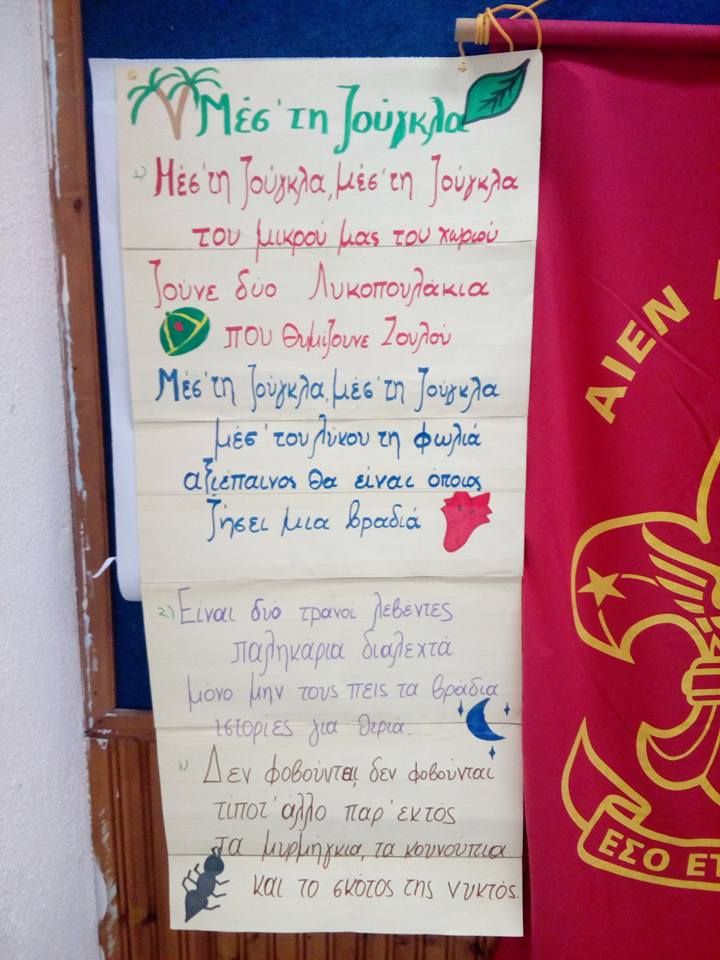 Μέσ' τη Ζούγκλα
1) Μέσ' τη Ζούγκλα, μέσ' τη Ζούγκλα
του μικρού μας του χωριού
Ζούνε δύο Λυκοπουλάκια
που θυμίζουνε Ζουλού
Μέσ' τη Ζούγκλα, μέσ' τη Ζούγκλα
μέσ' του λύκου τη φωλιά
αξιέπαινος θα είναι όποιος
ζήσει μια βραδιά
2) Είναι δυο τρανοί λεβέντες
παληκάρια διαλεχτά
μόνο μην τους πεις τα βράδια
ιστορίες για θεριά.
3) Δεν φοβούνται, δεν φοβούνται
τίποτ' άλλο παρ' εκτός
τα μυρμήγκια, τα κουνούπια
και το σκότος της νυκτός.
ΑΙΕΝ
ΕΣΟ ΕΤ